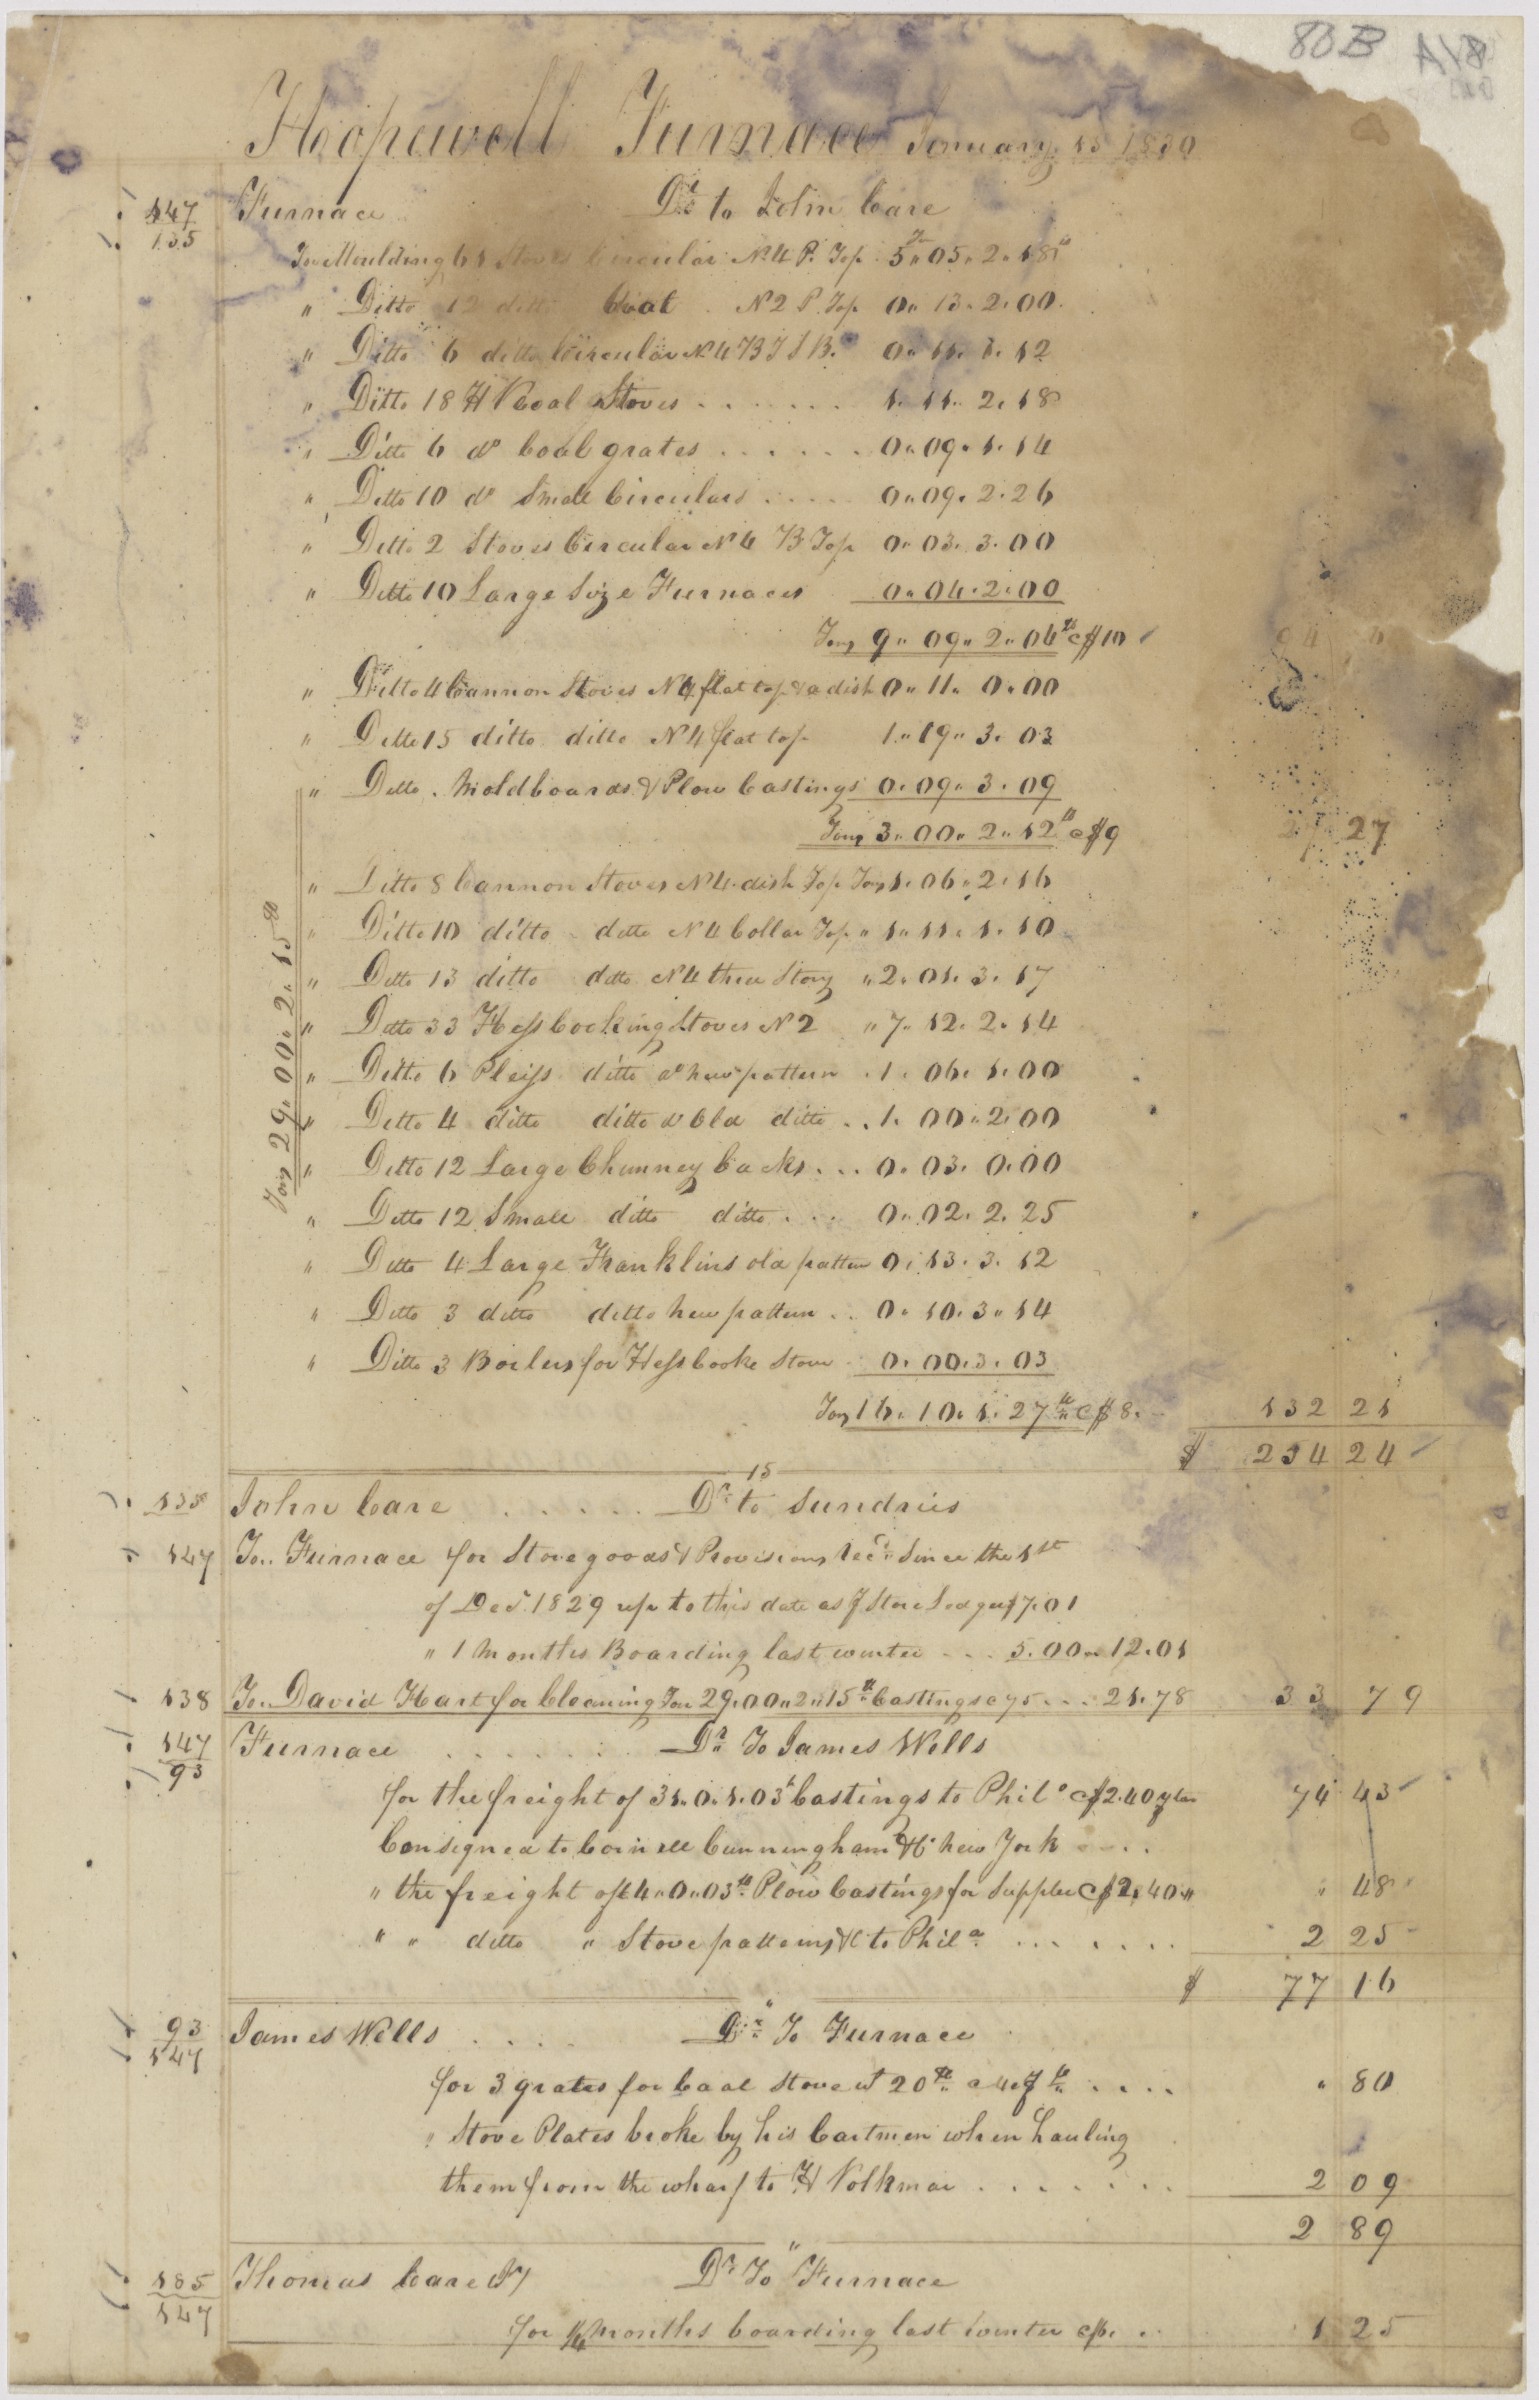 80B
Hopewell Furnace January 15 1830
147 Furnace Dr. to John Care
135
For Moulding 61 Stoves Circular N. 4 P. Top 5 " 05 " 2 " 18 lb
" Ditto 12 ditto Coal N 2 P. Top 0 " 13 . 2 . 00
" Ditto 6 ditto Circular N. 4 B 0 " 11 . 1 . 12
" Ditto 18 H V Coal Stoves . . . . . . 1 . 11 . 2 . 18
" Ditto 6 do Coal grates . . . . . . 0 . 09 . 1 . 14
" Ditto 10 do Small Circulars . . . . 0 . 09 . 2 . 26
" Ditto 2 Stoves Circular N 4 B Top 0 . 03 . 3 . 00
" Ditto 10 Large Size Furnaces 0 . 04 . 2 . 00
Tons 9 " 09 " 2 " 04 lb @ $10
" Ditto 4 Cannon Stoves N 4 flat top & a dish 0 " 11 . 0 . 00
" Ditto 15 ditto ditto N 4 flat top 1 " 19 " 3 . 03
" Ditto . Moldboards & Plow Castings 0 . 09 " 3 . 09
Tons 3 " 00 " 2 " 12 lb @ $9 27 27
" Ditto 8 Cannon Stoves N 4 dish Top Tons 1 . 06 " 2 . 16
" Ditto 10 ditto ditto N 4 Collar Top " 1 " 11 . 1 . 10
" Ditto 13 ditto ditto N 4 three Story " 2 . 01 . 3 . 17
" Ditto 33 Hess Cooking Stoves N 2 " 7 . 12 . 2 . 14
" Ditto 6 Pleiss ditto do new pattern . 1 . 06 . 1 . 00
" Ditto 4 ditto ditto do Old ditto . . 1 . 00 . 2 . 00
" Ditto 12 Large Chimney Backs . . . 0 . 03 . 0 . 00
" Ditto 12 Small ditto ditto . . . 0 . 02 . 2 . 25
" Ditto 4 Large Franklins old pattern 0 . 13 . 3 . 12
" Ditto 3 ditto ditto new pattern . . 0 . 10 . 3 . 14
" Ditto 3 Boilers for Hess Cooke Stove 0 . 00 . 3 . 03
Tons 16 . 10 . 1 . 27 lb @ $8 . 132 21
Tons 29 " 00 " 2 " 15 lb
$ 254 24
15
135 John Care . . . . . . Dr. to Sundries
147 To . Furnace for Store goods & Provisions recd. Since the 1st
of Decr. 1829 up to this date as Store Ledger $7.01
" 1 months Boarding last winter . . . 5.00 " 12.01
138 To . David Hart for Cleaning Tons 29 . 00 " 2 " 15 lb Castings @ 75 . . . 21.78 33 79
147 Furnace . . . . . . Dr. To James Wells
93
for the freight of 31 . 0 . 1 . 03 lb Castings to Phila @ $2.40 74 43
Consigned to Cornell Cunningham & Co New York . . . .
" the freight of 4 " 0 " 03 lb Plow Castings for Supplee @ $2.40 " " 48
" " ditto " Stove patterns &c to Phila . . . . . . 2 25
$ 77 16
"
93 James Wells . . . . Dr. To Furnace
147
for 3 grates for Coal Stove wt 20 lb @ 4 lb . . . . " 80
" Stove Plates broke by his Cartmen when hauling
them from the wharf to H Volkmar . . . . . . . 2 09
2 89
"
185 Thomas Care Dr. To Furnace
147
for 1/4 months boarding last winter . . 1 25